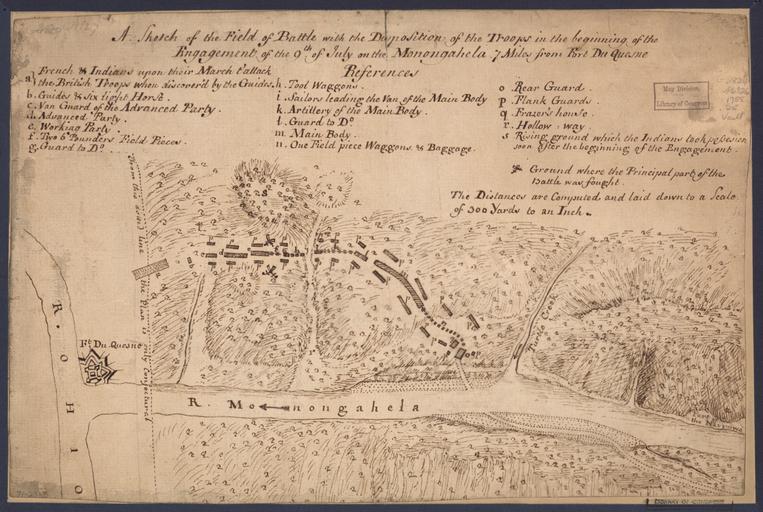 A Sketch of the Field of Battle with the Disposition of the Troops in the beginning of the
Engagement of the 9th of July on the Monongahela 7 Miles from Fort Du Quesne
References
a) French & Indians upon their March t'attack
the British Troops when discover'd by the Guides.
b. Guides & Six light Horse.
c. Van Guard of the Advanced Party.
d. Advanced Party.
e. Working Party.
f. Two 6 Pounders Field Pieces.
g. Guard to Do.
h. Tool Waggons.
i. Sailors leading the Van of the Main Body
k. Artillery of the Main Body.
l. Guard to Do
m. Main Body.
n. One Field piece Waggons & Baggage.
o Rear Guard.
p. Flank Guards.
q. Frazer's house.
r. Hollow way.
s Rising ground which the Indians took possession
soon after the beginning of the Engagement.
Ground where the Principal part of the
Battle was fought.
The Distances are Computed and laid down to a Scale
of 300 Yards to an Inch.
Map Division
Library of Congress
from the dotted line the Plan is only Conjectural
Ft. Du Quesne
R. OHIO
R. Monongahela
Turtle Creek
LIBRARY OF CONGRESS